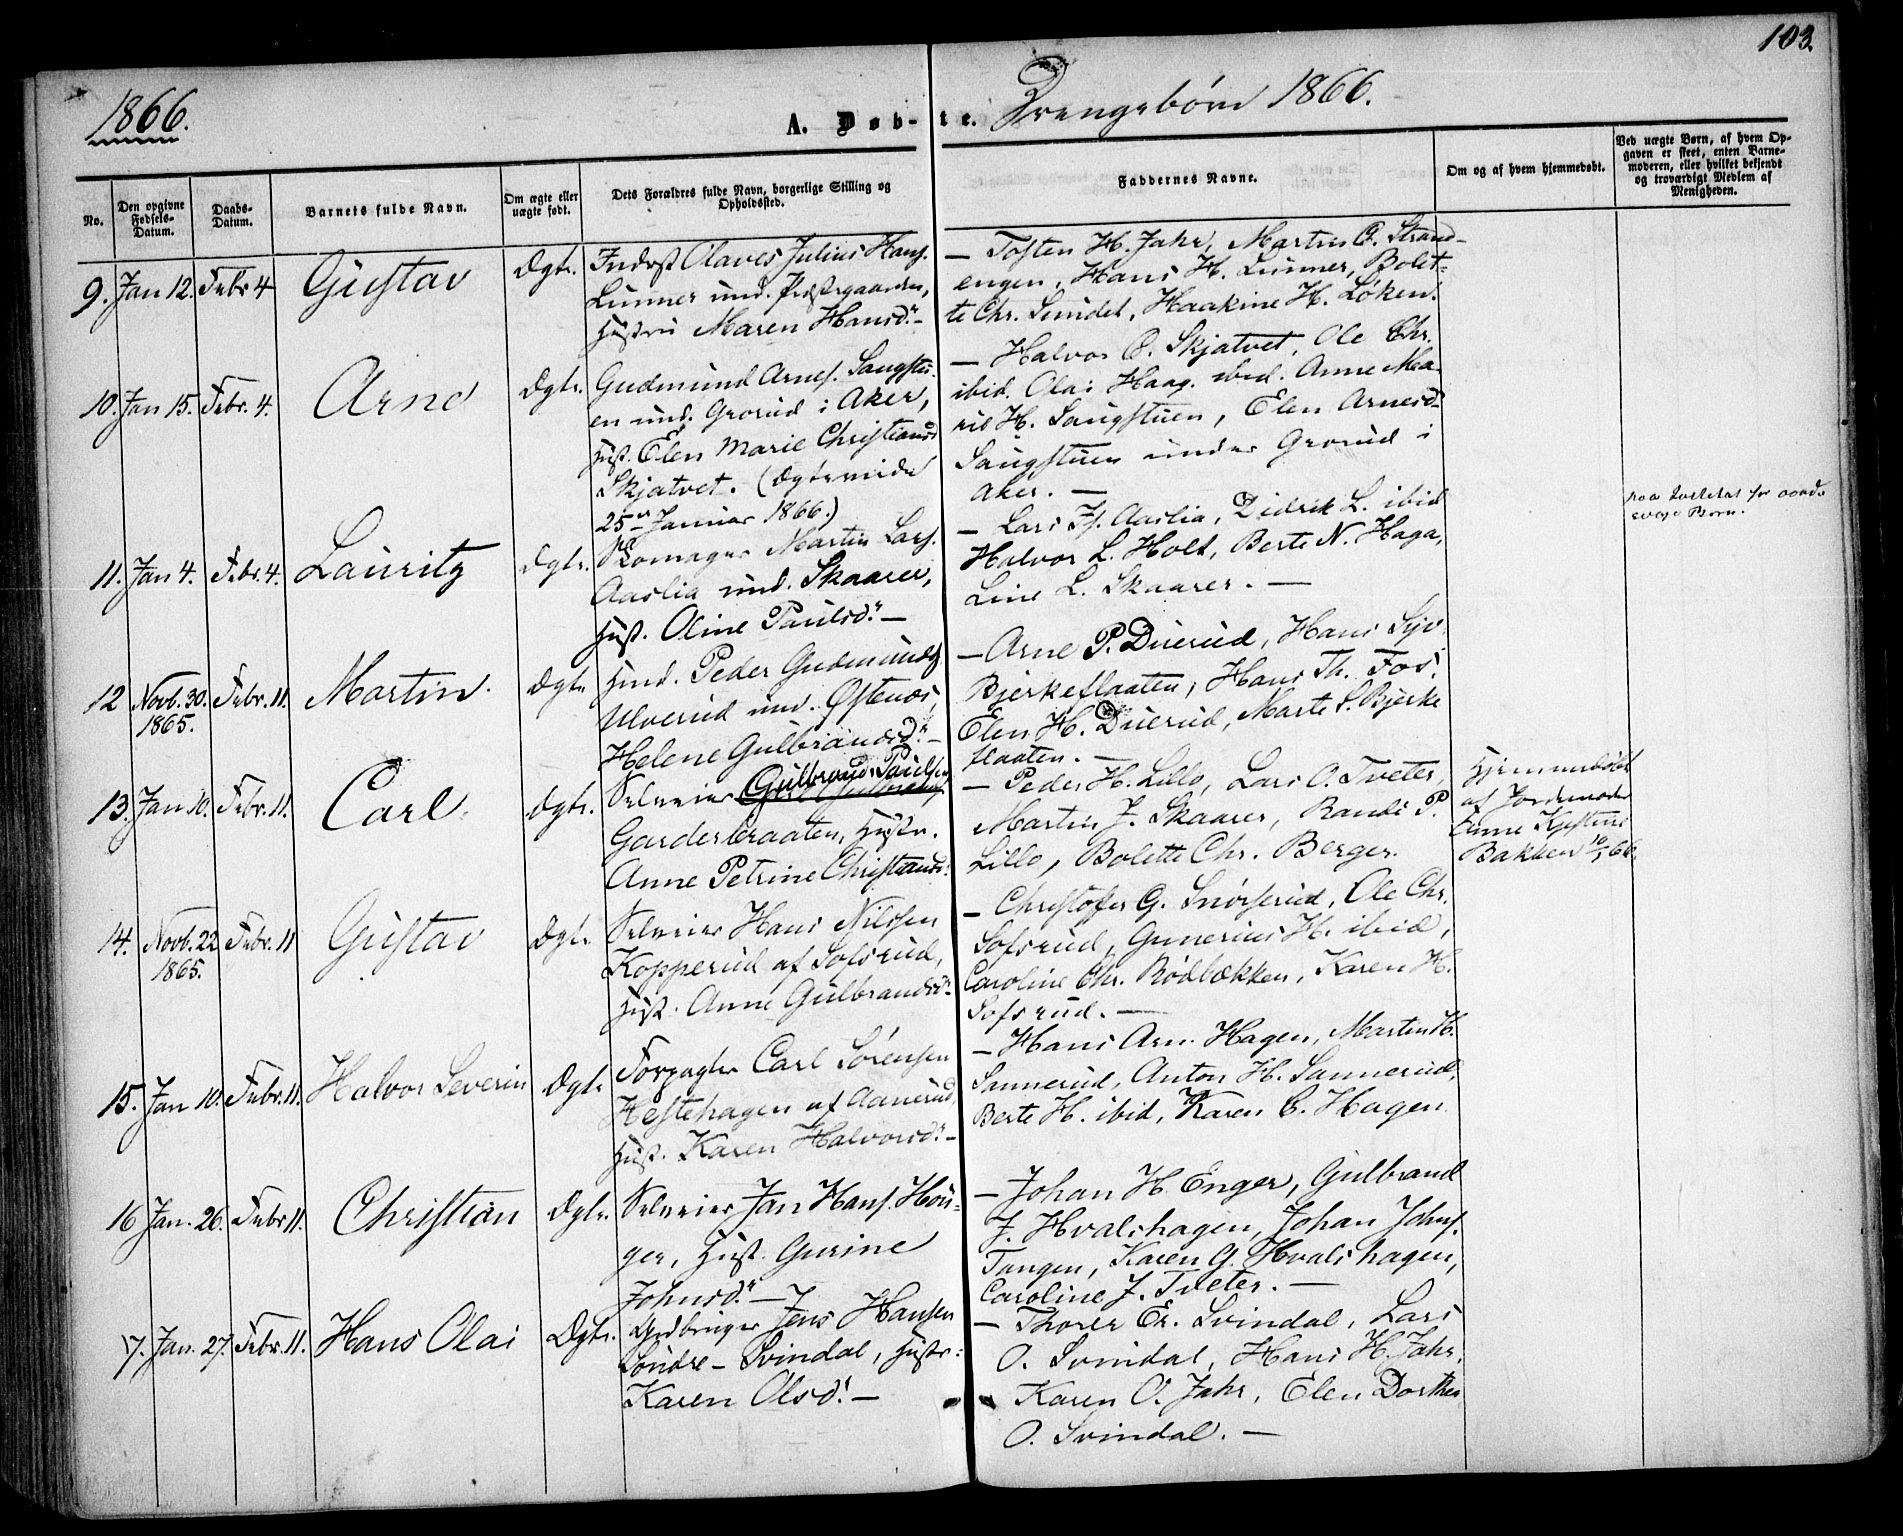 103.
1866.
A. Døb-te. Drengebørn 1866.
No.
Den opgivne Fødsels-Datum.
Daabs-Datum.
Barnets fulde Navn.
Om ægte eller uægte født.
Dets Forældres fulde Navn, borgerlige Stilling og Opholdssted.
Faddernes Navne.
Om og af hvem hjemmedøbt.
Ved uægte Børn, af hvem Opgaven er skeet, enten Barnemoderen, eller hvilket bekjendt og troværdigt Medlem af Menigheden.
9. Jan 12. Febr 4 Gustav Ægte.
Inderst Olaves Julius Hans.
Lunner und. Præstegaarden,
Hustru Maren Hansd. –
– Tosten H. Jahr, Martin O. Strand-
engen, Hans H. Lunner, Bolet-
te Chr. Smidet, Haakine H. Løken.
10. Jan 15. Febr. 4. Arne Ægte.
Gudmund Arnes. Saugstu-
en und. Grorud i Aker,
Hust. Elen Marie Christiansd
Skjatvet. (Ægteviede
25 Januar 1866.)
– Halvor C. Skjatvet, Ole Chr.
ibid. Olai Haag. ibid. Anne Ma-
rie H. Saugstuen, Elen Arnesd
Saugstuen under Grorud i
Aker. –
11. Jan 4. Febr. 4. Lauritz Ægte.
Skomager Martin Lars.
Aaslia und. Skaarer,
Hust. Oline Paulsd. –
– Lars Aaslia, Didrik L. ibid
Halvor L. Holt, Berte N. Haga,
Line L. Skaarer. –
12 Novb. 30. 1865. Febr. 11. Martin. Ægte
Husd. Peder Gudmunds
Ulverud und. Østnes,
Helene Gulbrandsd. –
– Arne P. Duerud, Hans Syv.
Bjerkeflaaten, Hans Th. Fos.
Elen H. Duerud, Marte S. Bjerke
flaaten. –
13. Jan 10. Febr. 11. Carl. Ægte.
Selveier Gulbrand Paulsen
Garderbraaten, Hustr.
Anne Petrine Christiansd:
– Peder H. Lillo, Lars O. Tveter,
Martin J. Skaarer, Randi P.
Lillo, Bolette Chr. Berger.
Hjemmedøbt
af Jordemoder
Anne Kjestine
Bakken 10/1 66.
14. Novb. 22 1865. Febr. 11 Gustav Ægte
Selveier Hans Nilssen
Kopperud af Sofsrud,
Hust. Anne Gulbrandsd. –
– Christofer G. Snørserud, Ole Chr.
Sofsrud, Gunerius H. ibid,
Caroline Chr. Rødbækken, Karen H.
Sofsrud. –
15. Jan 10. Febr. 11. Halvor Severin Ægte
Forpagter Carl Sørensen
Hestehagen af Aanerud,
Hust. Karen Halvorsd. –
– Hans Arn. Hagen, Martin H.
Sannerud, Anton H. Sannerud,
Berte H. ibid, Karen C. Hagen.
16 Jan. 26. Febr 11. Christian Ægte.
Selveier Jan Hans. Hou-
ger, Hust. Gurine
Johnsd. –
– Johan H Enger, Gulbrand
J. Hvalshagen, Johan Johns.
Tangen, Karen G. Hvalshagen,
Caroline J. Tveter. –
17. Jan. 27. Febr. 11. Hans Olai Ægte.
Gdbruger Jens Hansen
Søndre – Svindal, Hustr:
Karen Olsd. –
– Thorer Er. Svindal, Lars
O. Svindal, Hans H. Jahr,
Karen O. Jahr, Elen Dorthea
O. Svindal. –